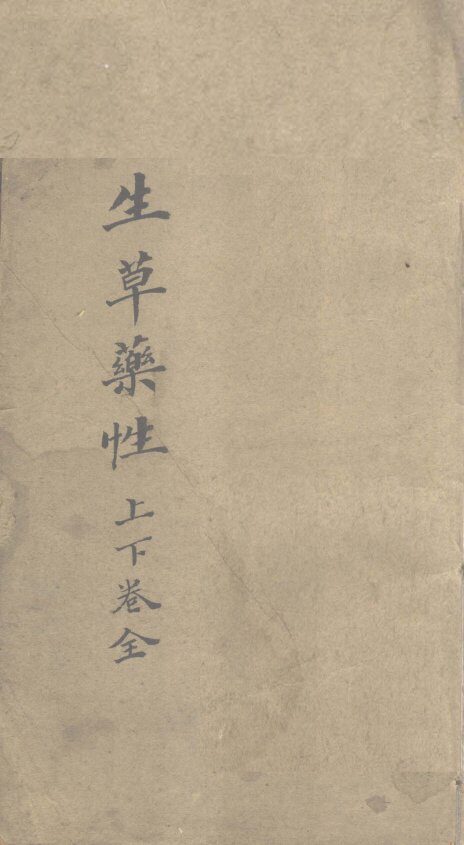 生草藥性上下卷全